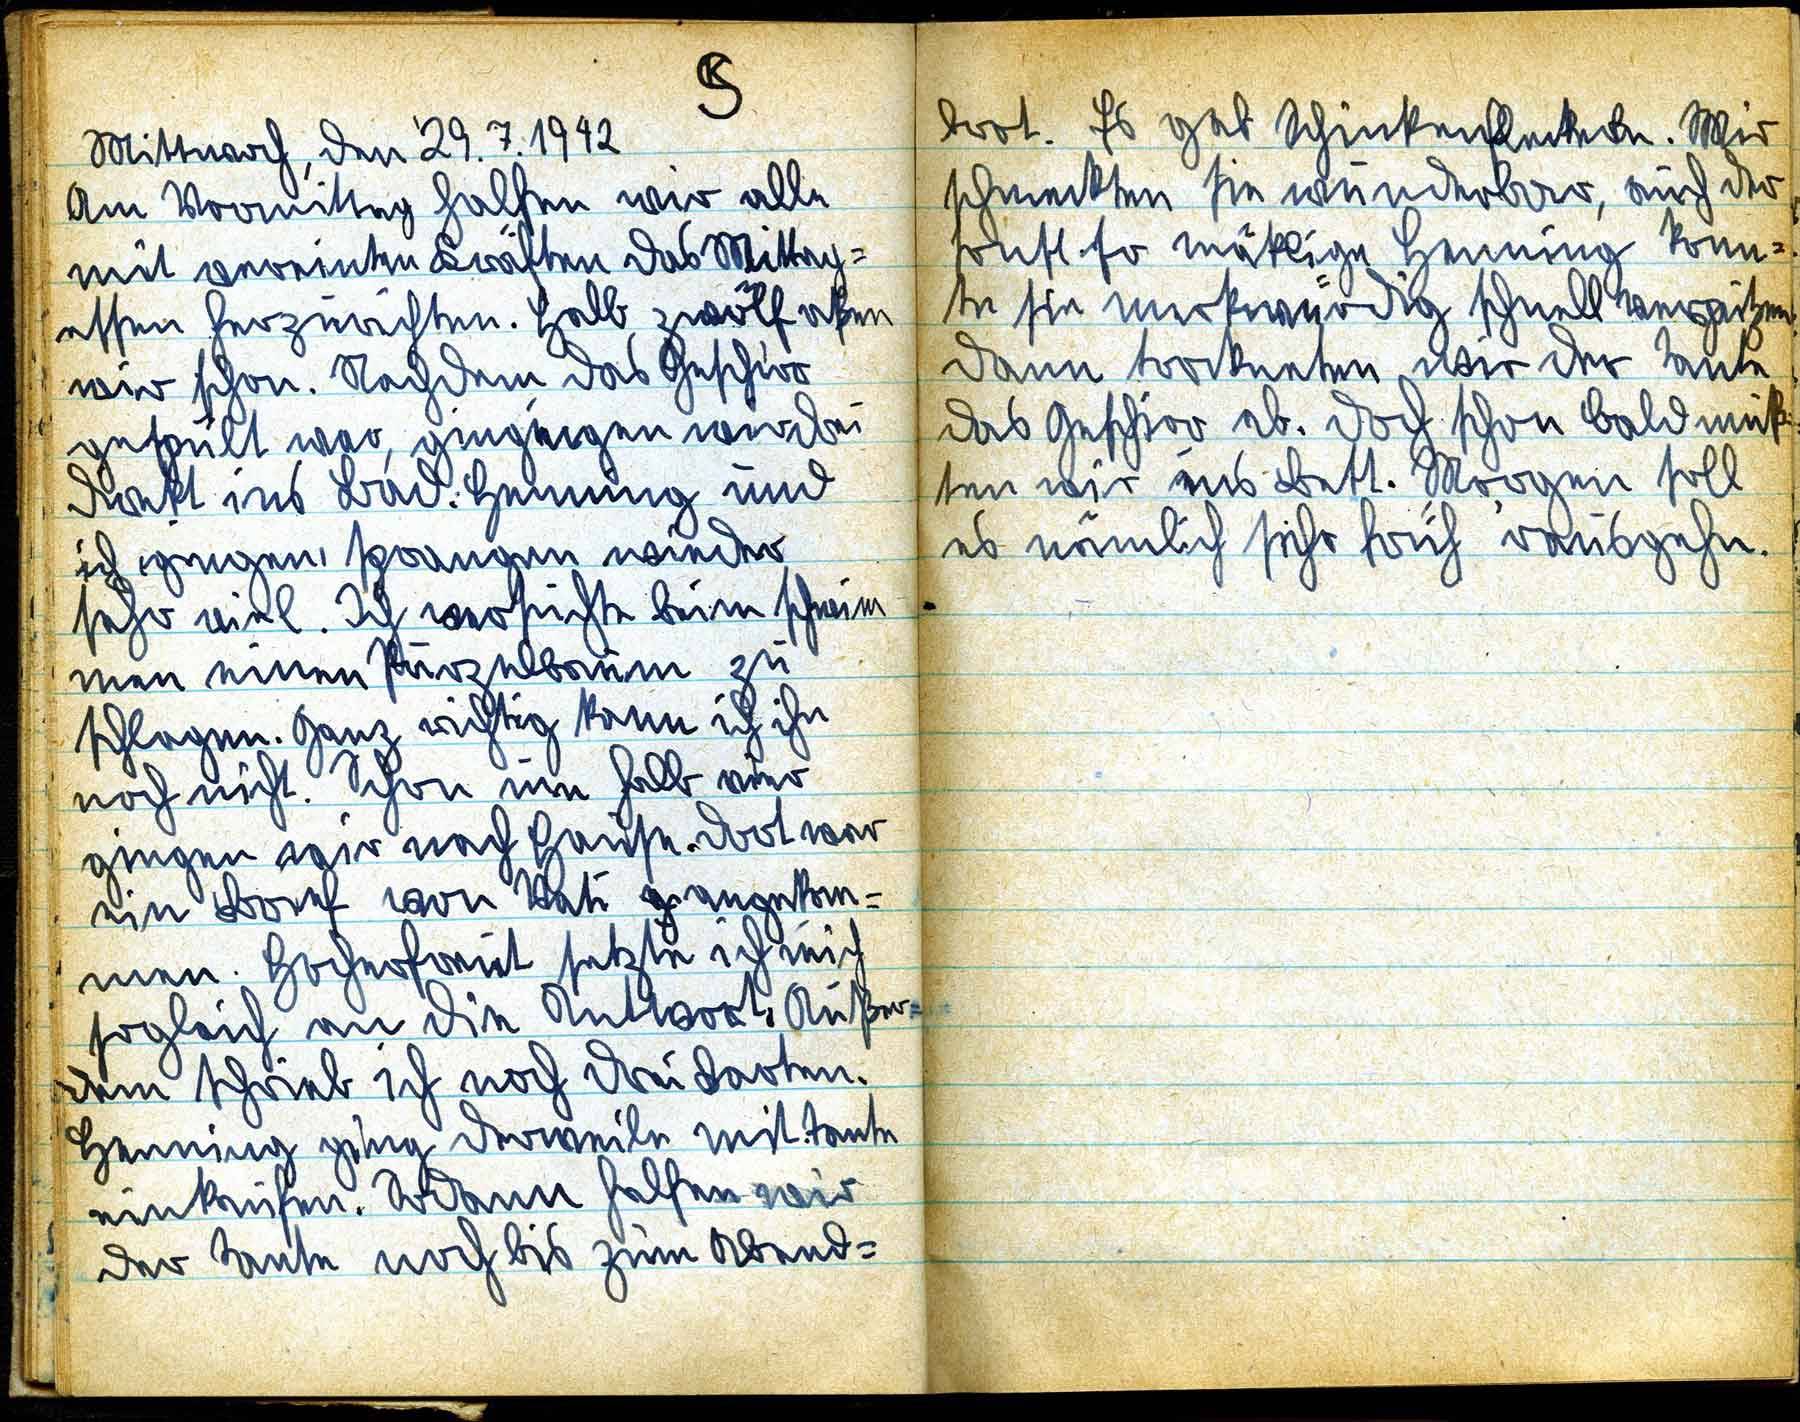 S
Mittwoch, den 29.7.1942
Am Vormittag halfen wir alle
mit vereinten Kräften das Mittag=
essen herzurichten. Halb zwölf aßen
wir schon. Nachdem das Geschirr
gespült war, gingen wir drei
direkt ins Bad. Henning und
ich sprangen wieder
sehr viel. Ich versuchte beim schwim
men einen Purzelbaum zu
schlagen. Ganz richtig kann ich ihn
noch nicht. Schon um halb vier
gingen wir nach Hause. Dort war
ein Brief von Vati angekom=
men. Hocherfreut setzte ich mich
sogleich an die Antwort. Außer=
dem schrieb ich noch drei Karten.
Henning ging derweile mit Tante
einkaufen. Sodann halfen wir
der Tante noch bis zum Abend=
brot. Es gab Schinkenfleckerln. Mir
schmeckten sie wunderbar, auch der
sonst so mäklige Henning konn=
te sie merkwürdig schnell verputzen.
Dann trockneten wir der Tante
das Geschirr ab. Doch schon bald muß=
ten wir ins Bett. Morgen soll
es nämlich sehr früh rausgehn.